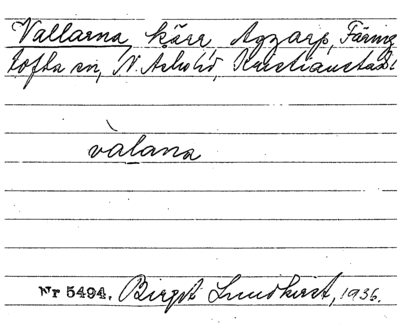 Vallarna kärr Aggarp, Färing
tofta sn, N. Åsbo hd, Kristianstads l
vàlana
Nr 5494. Birgit Lundkvist, 1936.